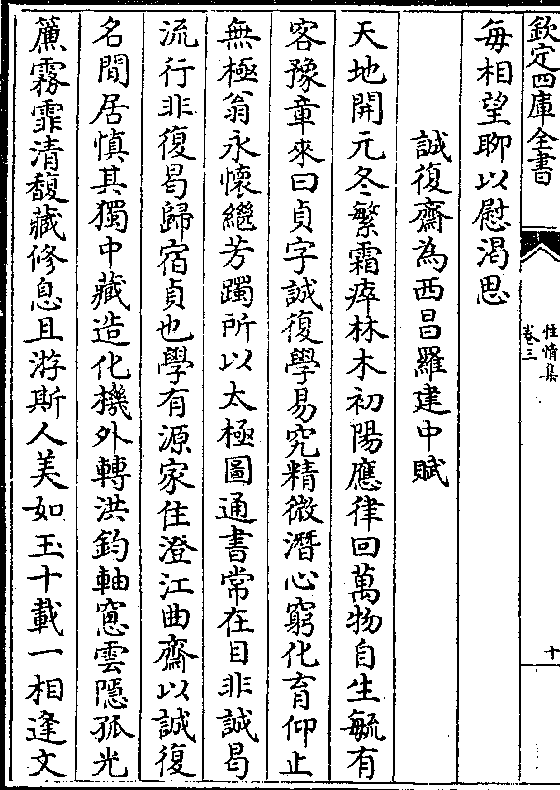 欽定四庫全書
性情集
卷三
十
每相望聊以慰渇思
誠復齋為西昌羅建中賦
天地開元冬繁霜瘁林木初陽應律回萬物自生毓有
客豫章來曰貞字誠復學易究精微潛心窮化育仰止
無極翁永懷繼芳躅所以太極圖通書常在目非誠曷
流行非復曷歸宿貞也學有源家住澄江曲齋以誠復
名閒居慎其獨中藏造化機外轉洪鈞軸窻雲隱孤光
簾霧霏清馥藏修息且游斯人美如玉十載一相逢文